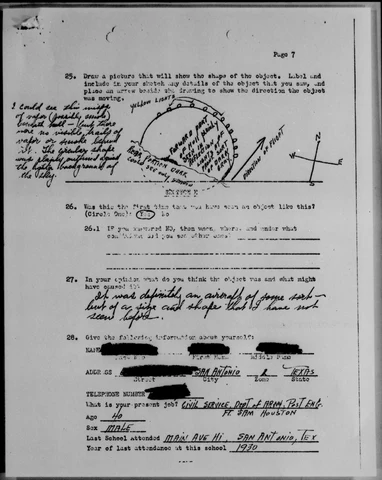 Page 7
25. Draw a picture that will show the shape of the object. Label and
include in your sketch any details of the object that you saw, and
place an arrow beside the drawing to show the direction the object
was moving.
YELLOW LIGHTS
I could see this image
of vapor (possibly smoke)
beneath hull - but there
were no visible trails of
vapor or smoke behind
it. The circular shape
was plainly outlined against
the lighter background of
the sky.
BODY PORTION DARK
COULD SEE ONLY
DIRECTION OF FLIGHT
N
E
S
W
26. Was this the first time that you have seen an object like this?
(Circle One) Yes No
26.1 If you answered NO, then when, where, and under what
27. In your opinion what do you think the object was and what might
have caused it?
It was definitely an aircraft of some sort -
but of a size and shape that I have not
seen before.
28. Give the following information about yourself:
NAME
Last Name First Name Middle Name
ADDRESS SAN ANTONIO 2 TEXAS
Street City Zone State
TELEPHONE NUMBER
What is your present job? CIVIL SERVICE DEPT OF ARMY, POST ENG.
FT. SAM HOUSTON
Age 40
Sex MALE
Last School Attended MAIN AVE HI, SAN ANTONIO, TEX
Year of last attendance at this school 1930